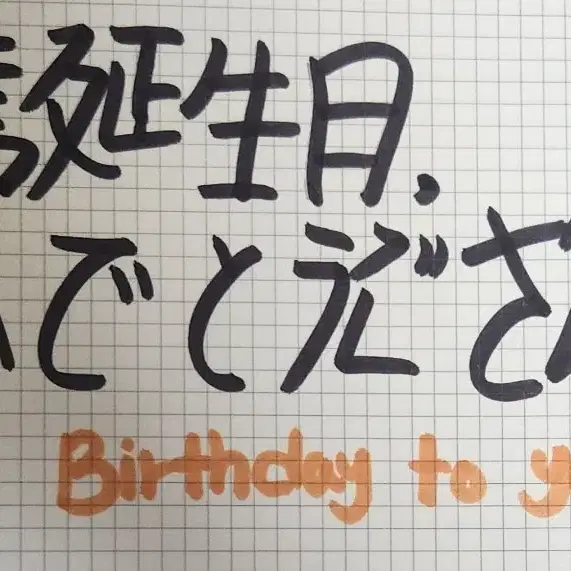 誕生日、
でとうござ
Birthday to y